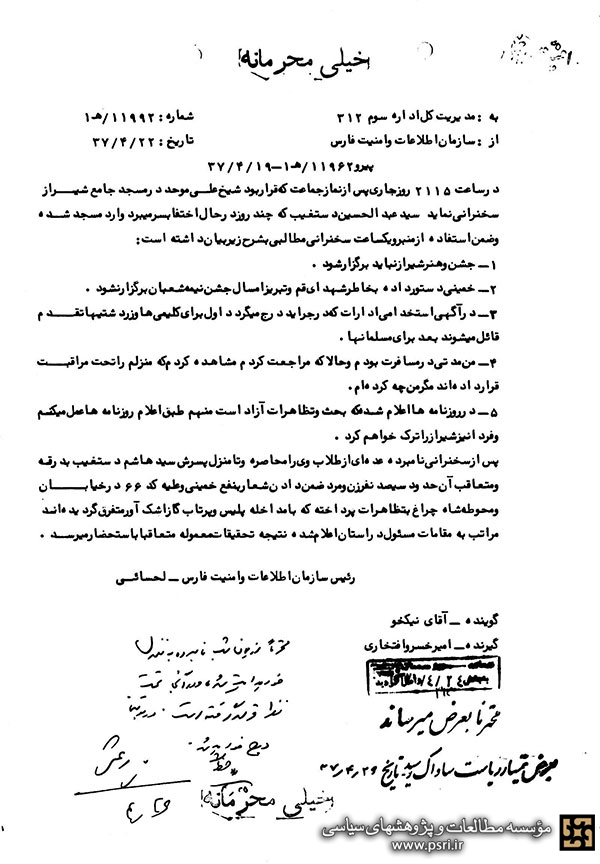 خیلی محرمانه
به : مدیریت کل اداره سوم ۳۱۲
شماره : ۱۱۹۹۲/هـ۱
از : سازمان اطلاعات و امنیت فارس
تاریخ : ۳۷/۴/۲۲
پیرو ۱۱۹۶۲/هـ۱-۳۷/۴/۱۹
در ساعت ۲۱۱۵ روز جاری پس از نماز جماعت که قرار بود شیخ علی موحد در مسجد جامع شیراز
سخنرانی نماید سید عبدالحسین دستغیب که چند روز در حال اختفا بسر میبرد وارد مسجد شده
وضمن استفاده از منبر و یکساعت سخنرانی مطالبی بشرح زیر بیان داشته است :
۱ــ جشن و هنر شیراز نباید برگزار شود .
۲ــ خمینی دستور داده بخاطر شهدای قم و تبریز امسال جشن نیمه شعبان برگزار نشود .
۳ــ در آگهی استخدامی ادارات که در جراید درج میگردد اول برای کلیمی ها و زردشتیها تقدم
قائل میشوند بعد برای مسلمانها .
۴ــ من مدتی در مسافرت بودم و حالا که مراجعت کردم مشاهده کردم که منزلم را تحت مراقبت
قرار داده اند مگر من چه کرده ام .
۵ــ در روزنامه ها اعلام شده که بحث و تظاهرات آزاد است منهم طبق اعلام روزنامه ها عمل میکنم
و فردا نیز شیراز را ترک خواهم کرد .
پس از سخنرانی نامبرده عده ای از طلاب وی را محاصره و تا منزل پسرش سید هاشم دستغیب بدرقه
و متعاقب آن حدود سیصد نفر زن و مرد ضمن دادن شعار بنفع خمینی و علیه کد ۶۶ در خیابان
و محوطه شاه چراغ بتظاهرات پرداخته که با مداخله پلیس و پرتاب گاز اشک آور متفرق گردیده اند
مراتب به مقامات مسئول در استان اعلام شده نتیجه تحقیقات معموله متعاقبا باستحضار میرسد .
رئیس سازمان اطلاعات و امنیت فارس ــ لحسائی
گوینده ــ آقای نیکخو
گیرنده ــ امیر خسرو افتخاری
محترماً بعرض میرساند
بعرض تیمسار ریاست ساواک رسید تاریخ ۳۷/۴/۲۶
خیلی محرمانه
مؤسسه مطالعات و پژوهشهای سیاسی
www.psri.ir